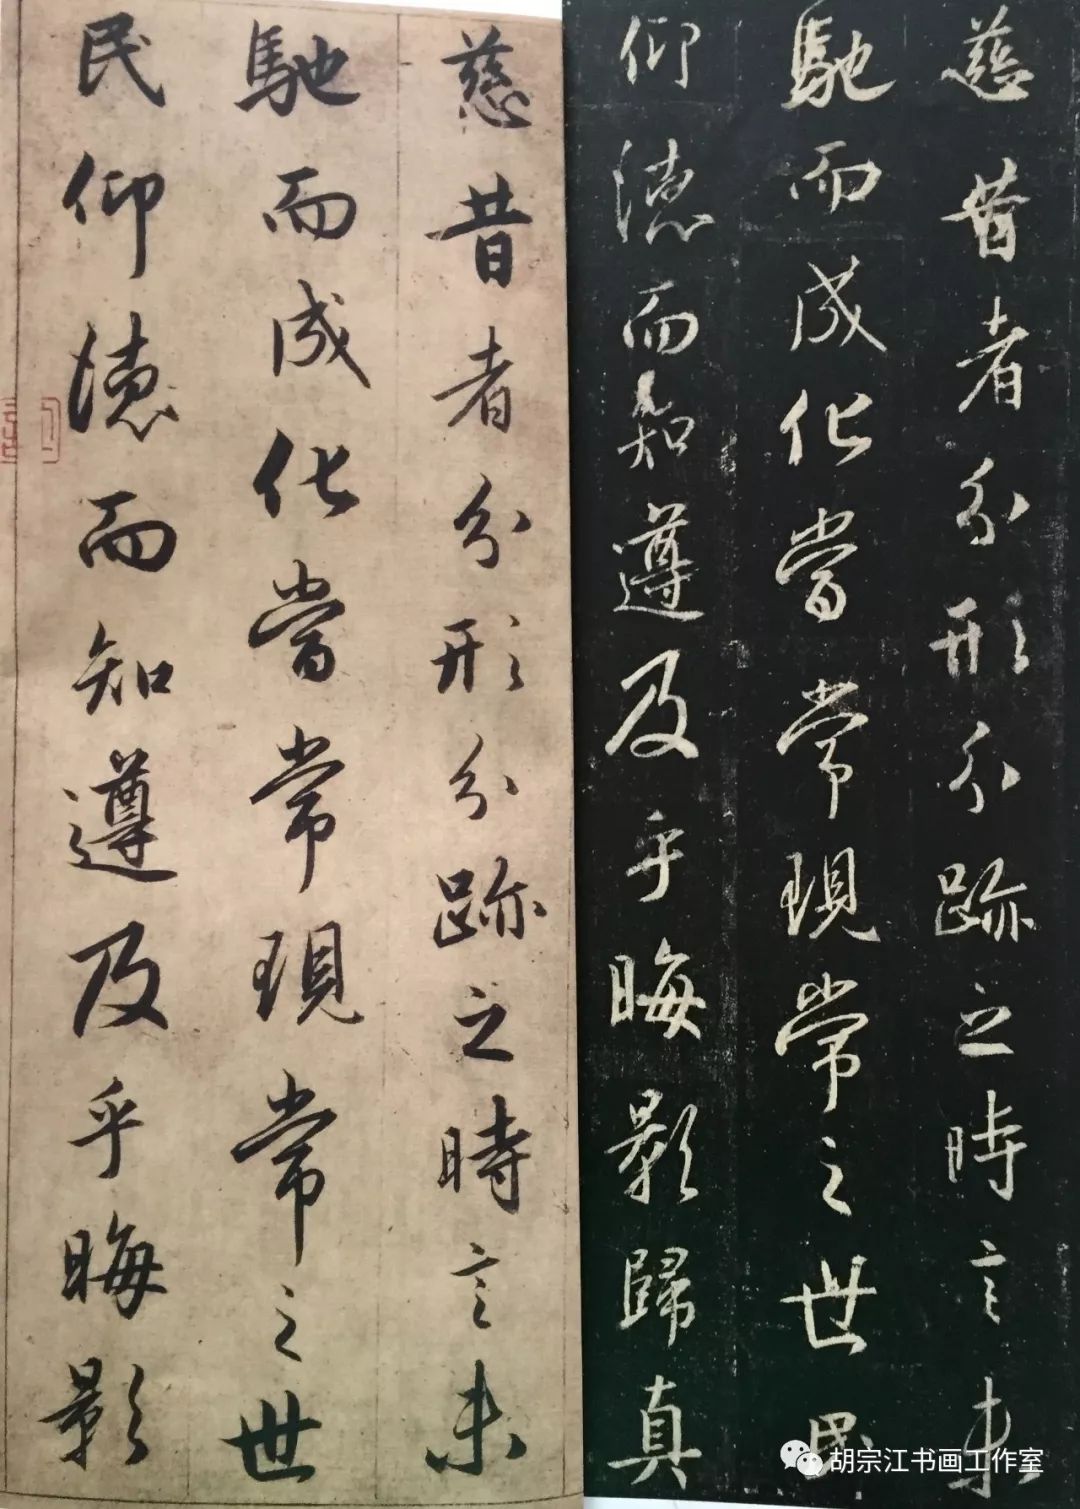 慈昔者分形分跡之時言未
馳而成化當常現常之世民
仰德而知遵及乎晦影歸真
慈昔者分形分跡之時言未
馳而成化當常現常之世
民仰德而知遵及乎晦影
胡宗江书画工作室